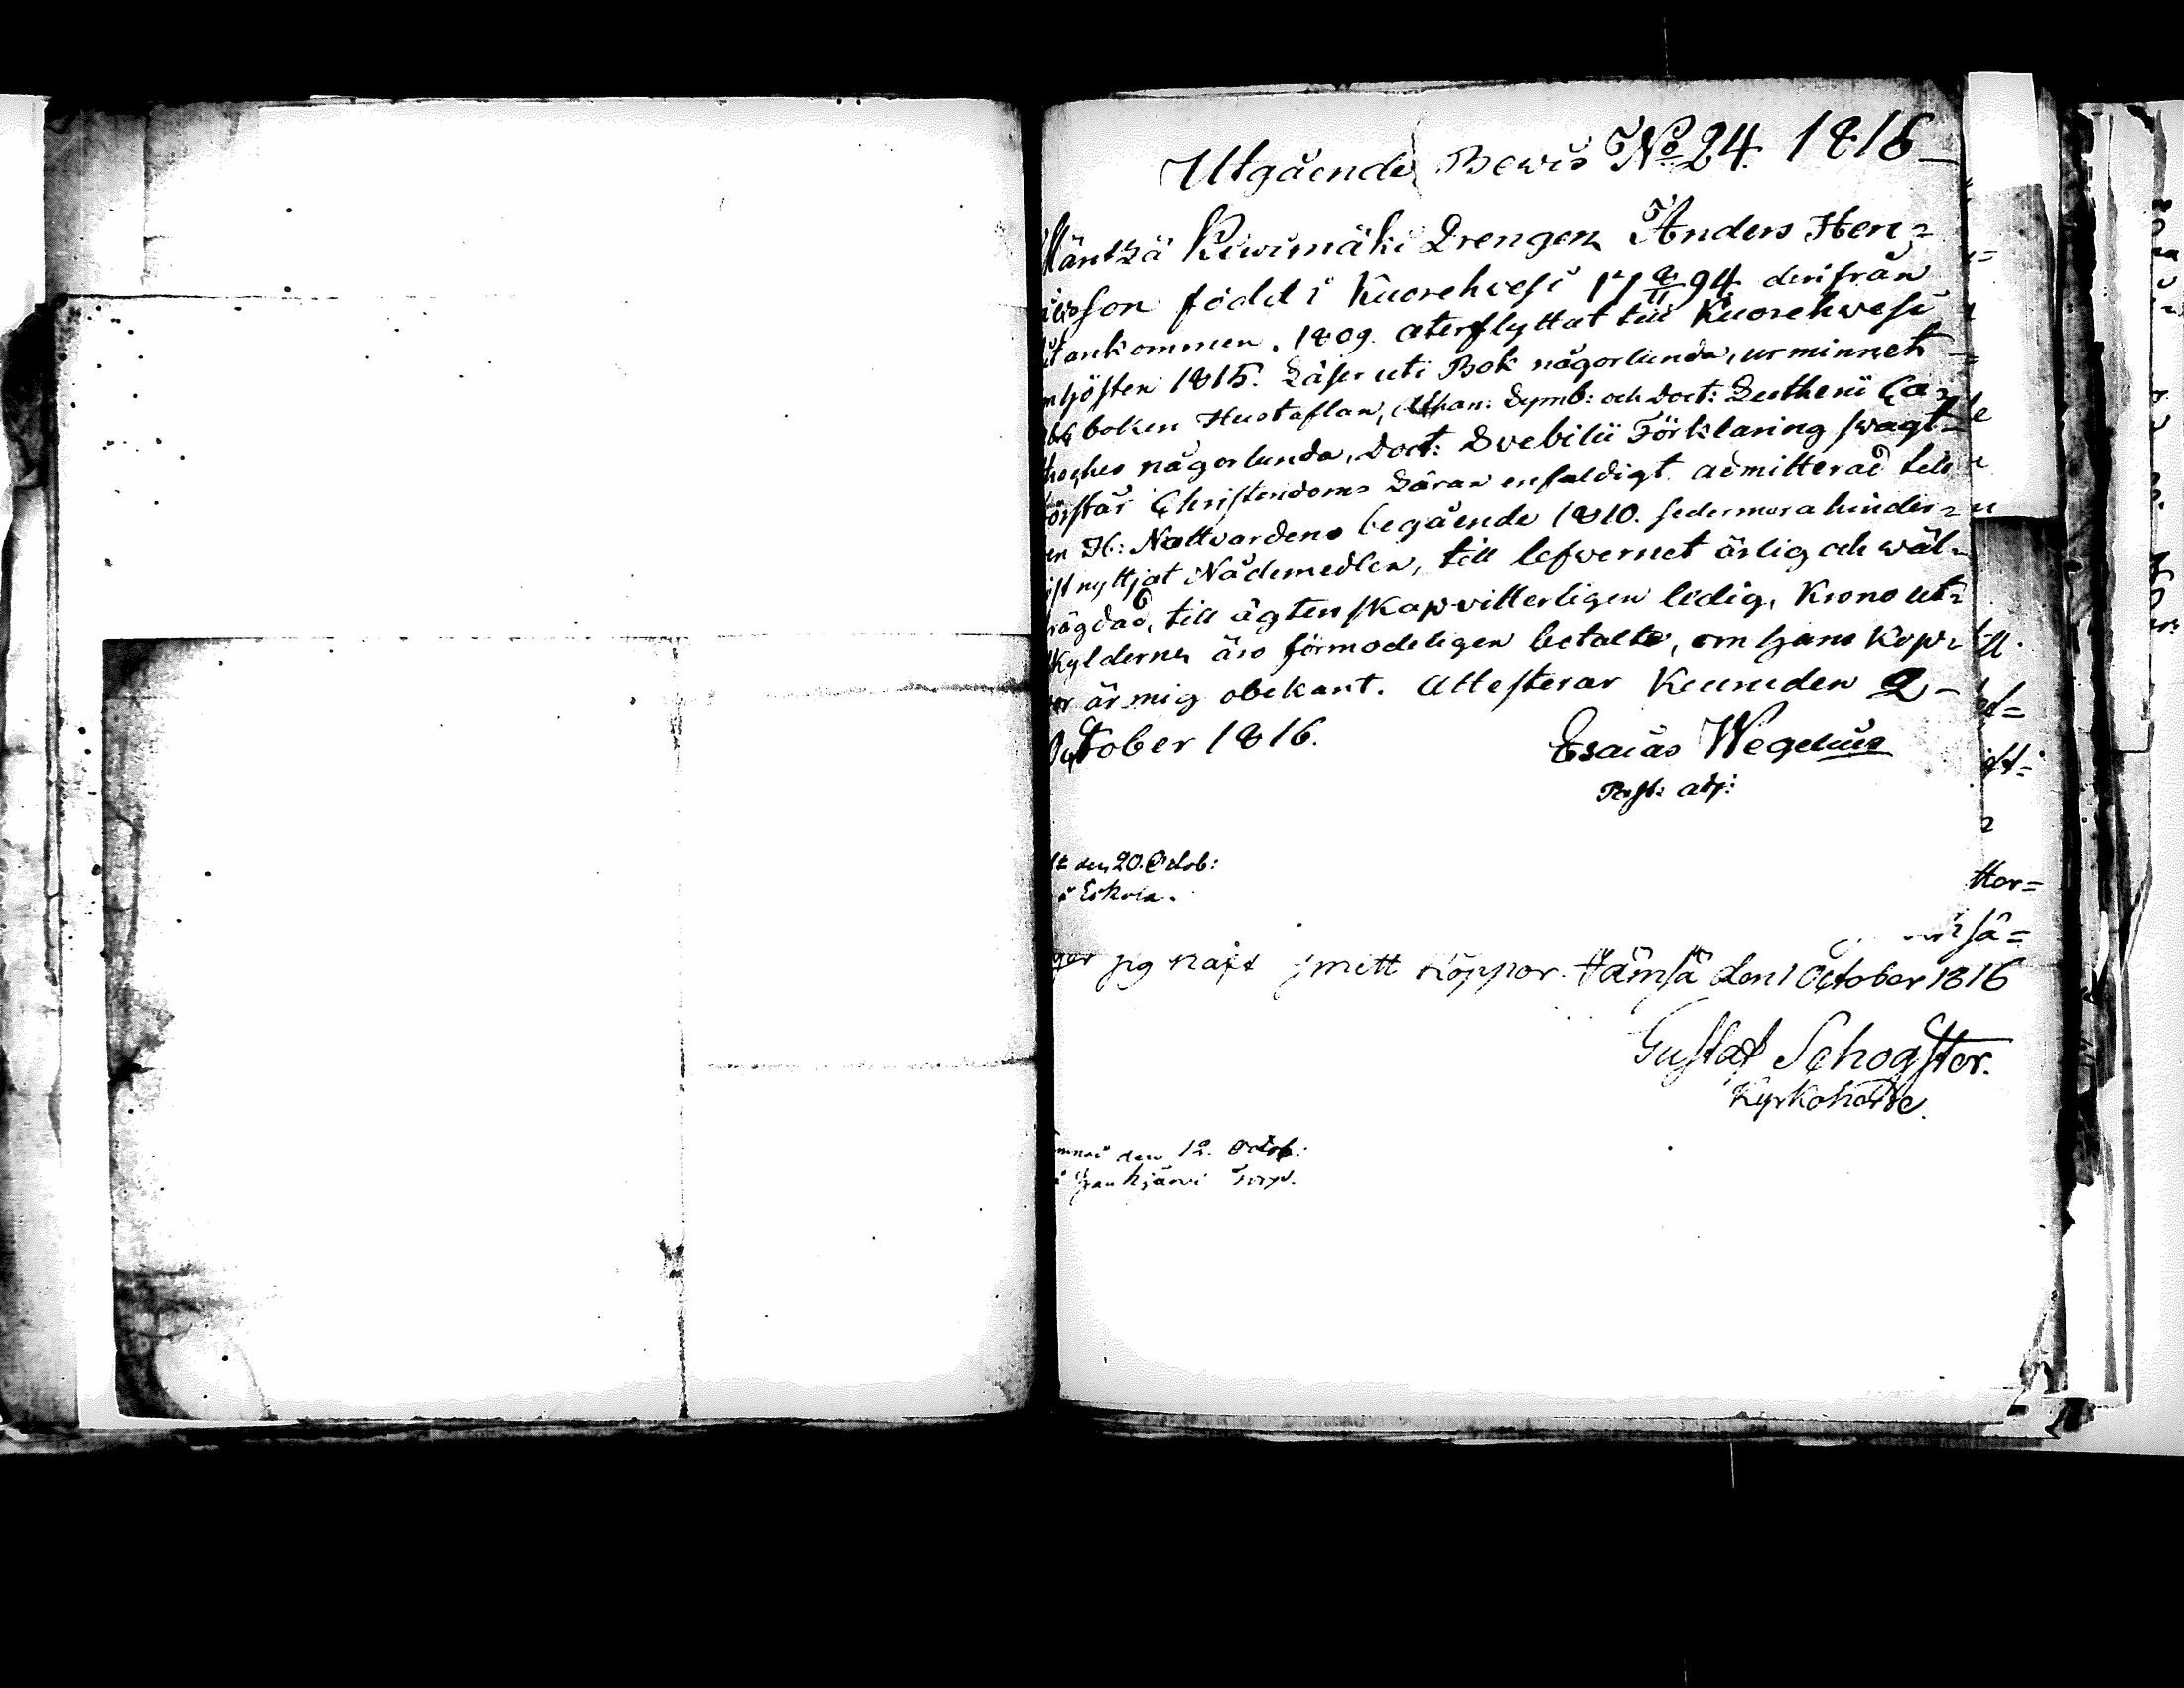 Utgående Bewis No 24. 1816
Mäntzä Kiwimäki Drengen Anders Hen-
ricsson född i Kuorehvesi 17 8/11 94 derifrån
hit ankommen. 1809. återflyttat till Kuorehwesi
om hösten 1815. Läser uti Bok någorlunda, ur minnet
abc boken Hustaflan, Athan: Symb: och Doct: Lutheri Ca-
theches någorlunda, Doct: Svebilii Förklaring swagt
förstår Christendoms Läran enfaldigt. admitterad till
den H: Nattvardens begående 1810. sedermera hinder-
löst nyttjat Nådemedlen, till lefvernet ärlig och wäl-
frägdad, till ägtenskap vitterligen ledig, Krono ut-
skylderna äro förmodeligen betalte, om hans Kop-
por är mig obekant. Attesterar Keuruden 2
October 1816.
Esaias Wegelius
Past: adj:
den 20. Octob:
i Eskola.
sig haft Köppor. Jämsä den 1 October 1816
Gustaf Schogster.
Kyrkoherde.
den 12. Octob: